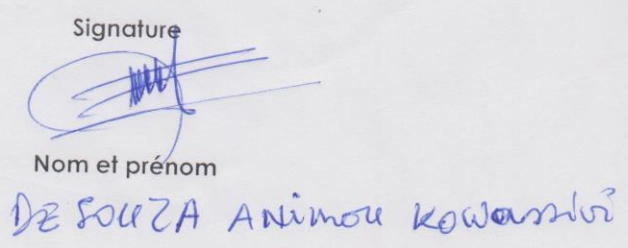 Signature
Nom et prénom
DE SOUZA ANimou Kowassivi